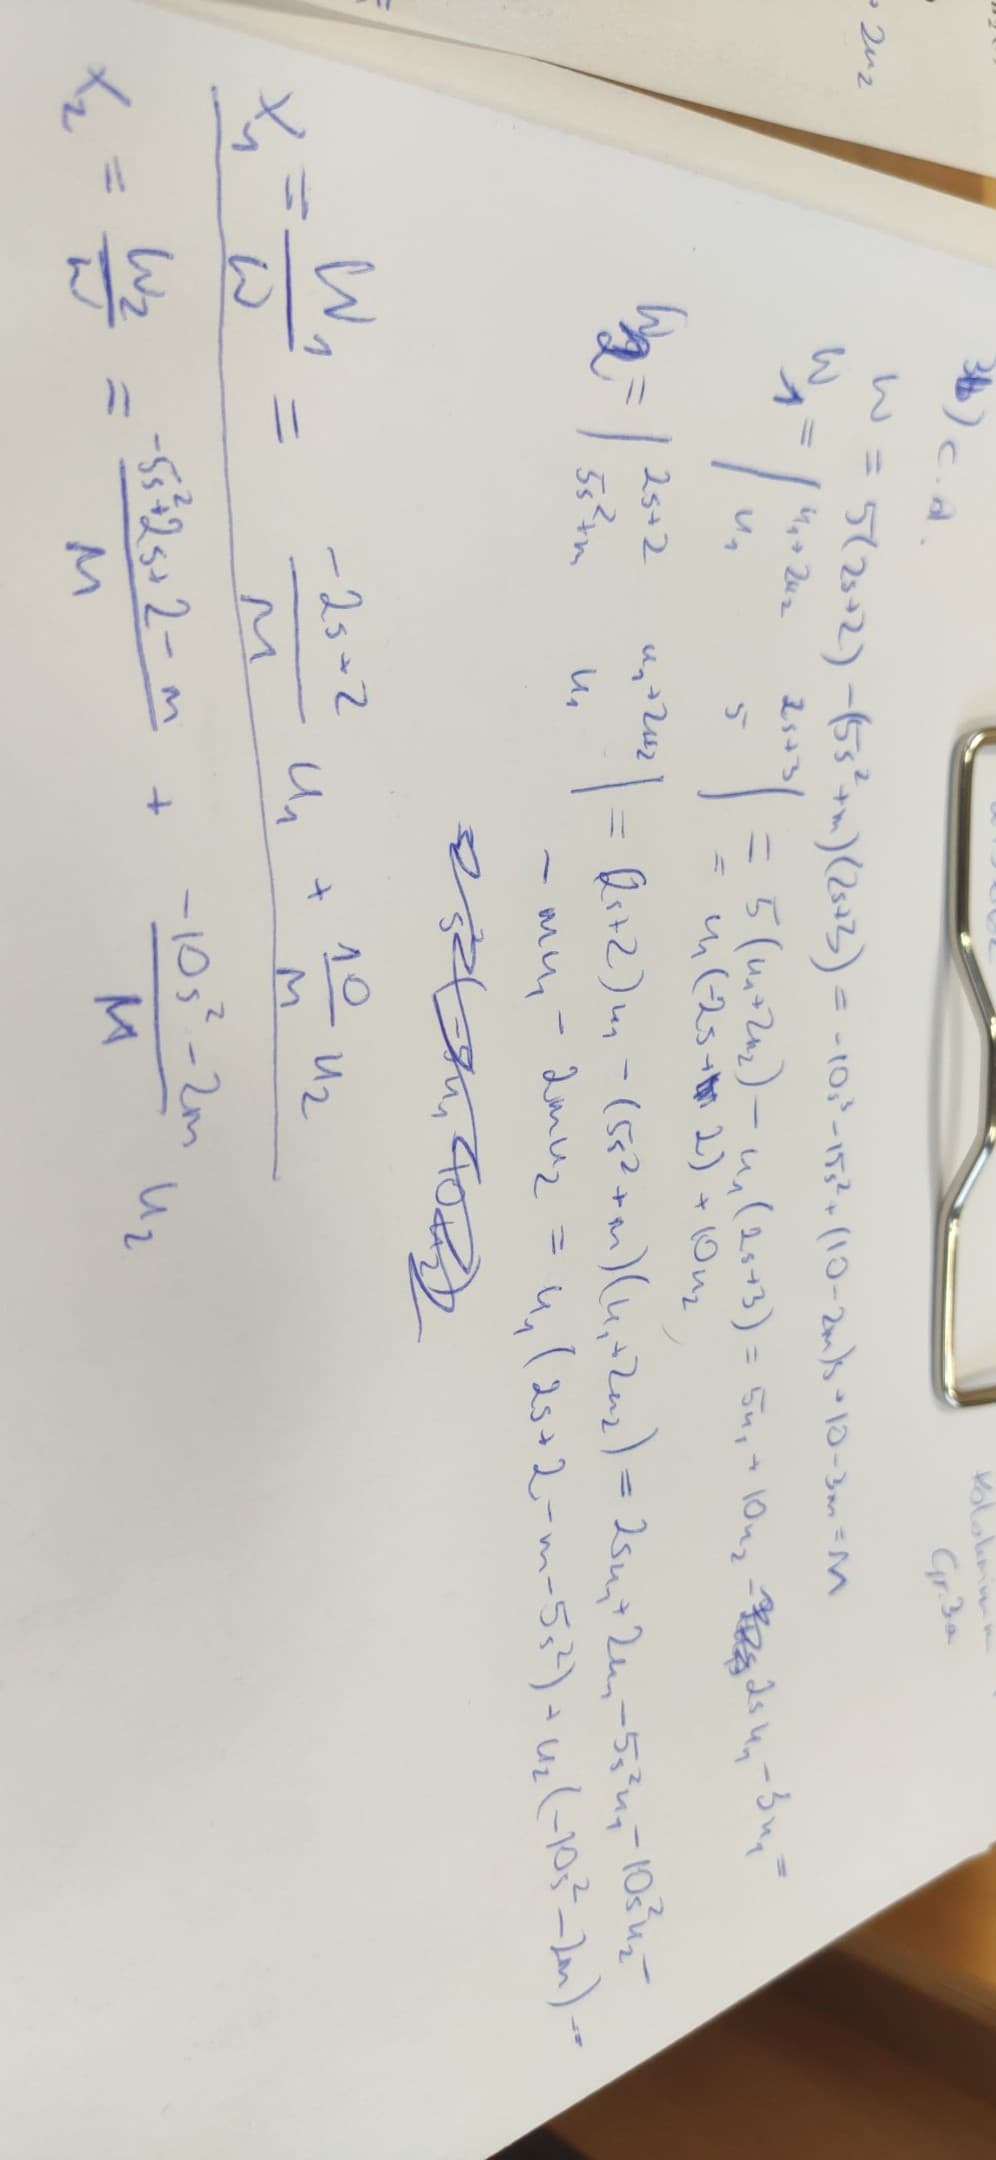 · 2u₂
Gr. 3a
3b) c.d.
W = 5(2s+2) - (5s²+m)(2s+3) = -10s³-15s²+(10-2m)s+10-3m = M
W₁ = | u₁+2u₂ 2s+3 | = 5(u₁+2u₂) - u₁(2s+3) = 5u₁+10u₂ - 2su₁ - 3u₁ =
| u₁ 5 | = u₁(-2s+2) + 10u₂
W₂ = | 2s+2 u₁+2u₂ | = (2s+2)u₁ - (5s²+m)(u₁+2u₂) = 2su₁+2u₁-5s²u₁-10s²u₂-
| 5s²+m u₁ | - mu₁ - 2mu₂ = u₁(2s+2-m-5s²) + u₂(-10s²-2m) =
X₁ = W₁/W = (-2s+2)/M u₁ + 10/M u₂
X₂ = W₂/W = (-5s²+2s+2-m)/M + (-10s²-2m)/M u₂